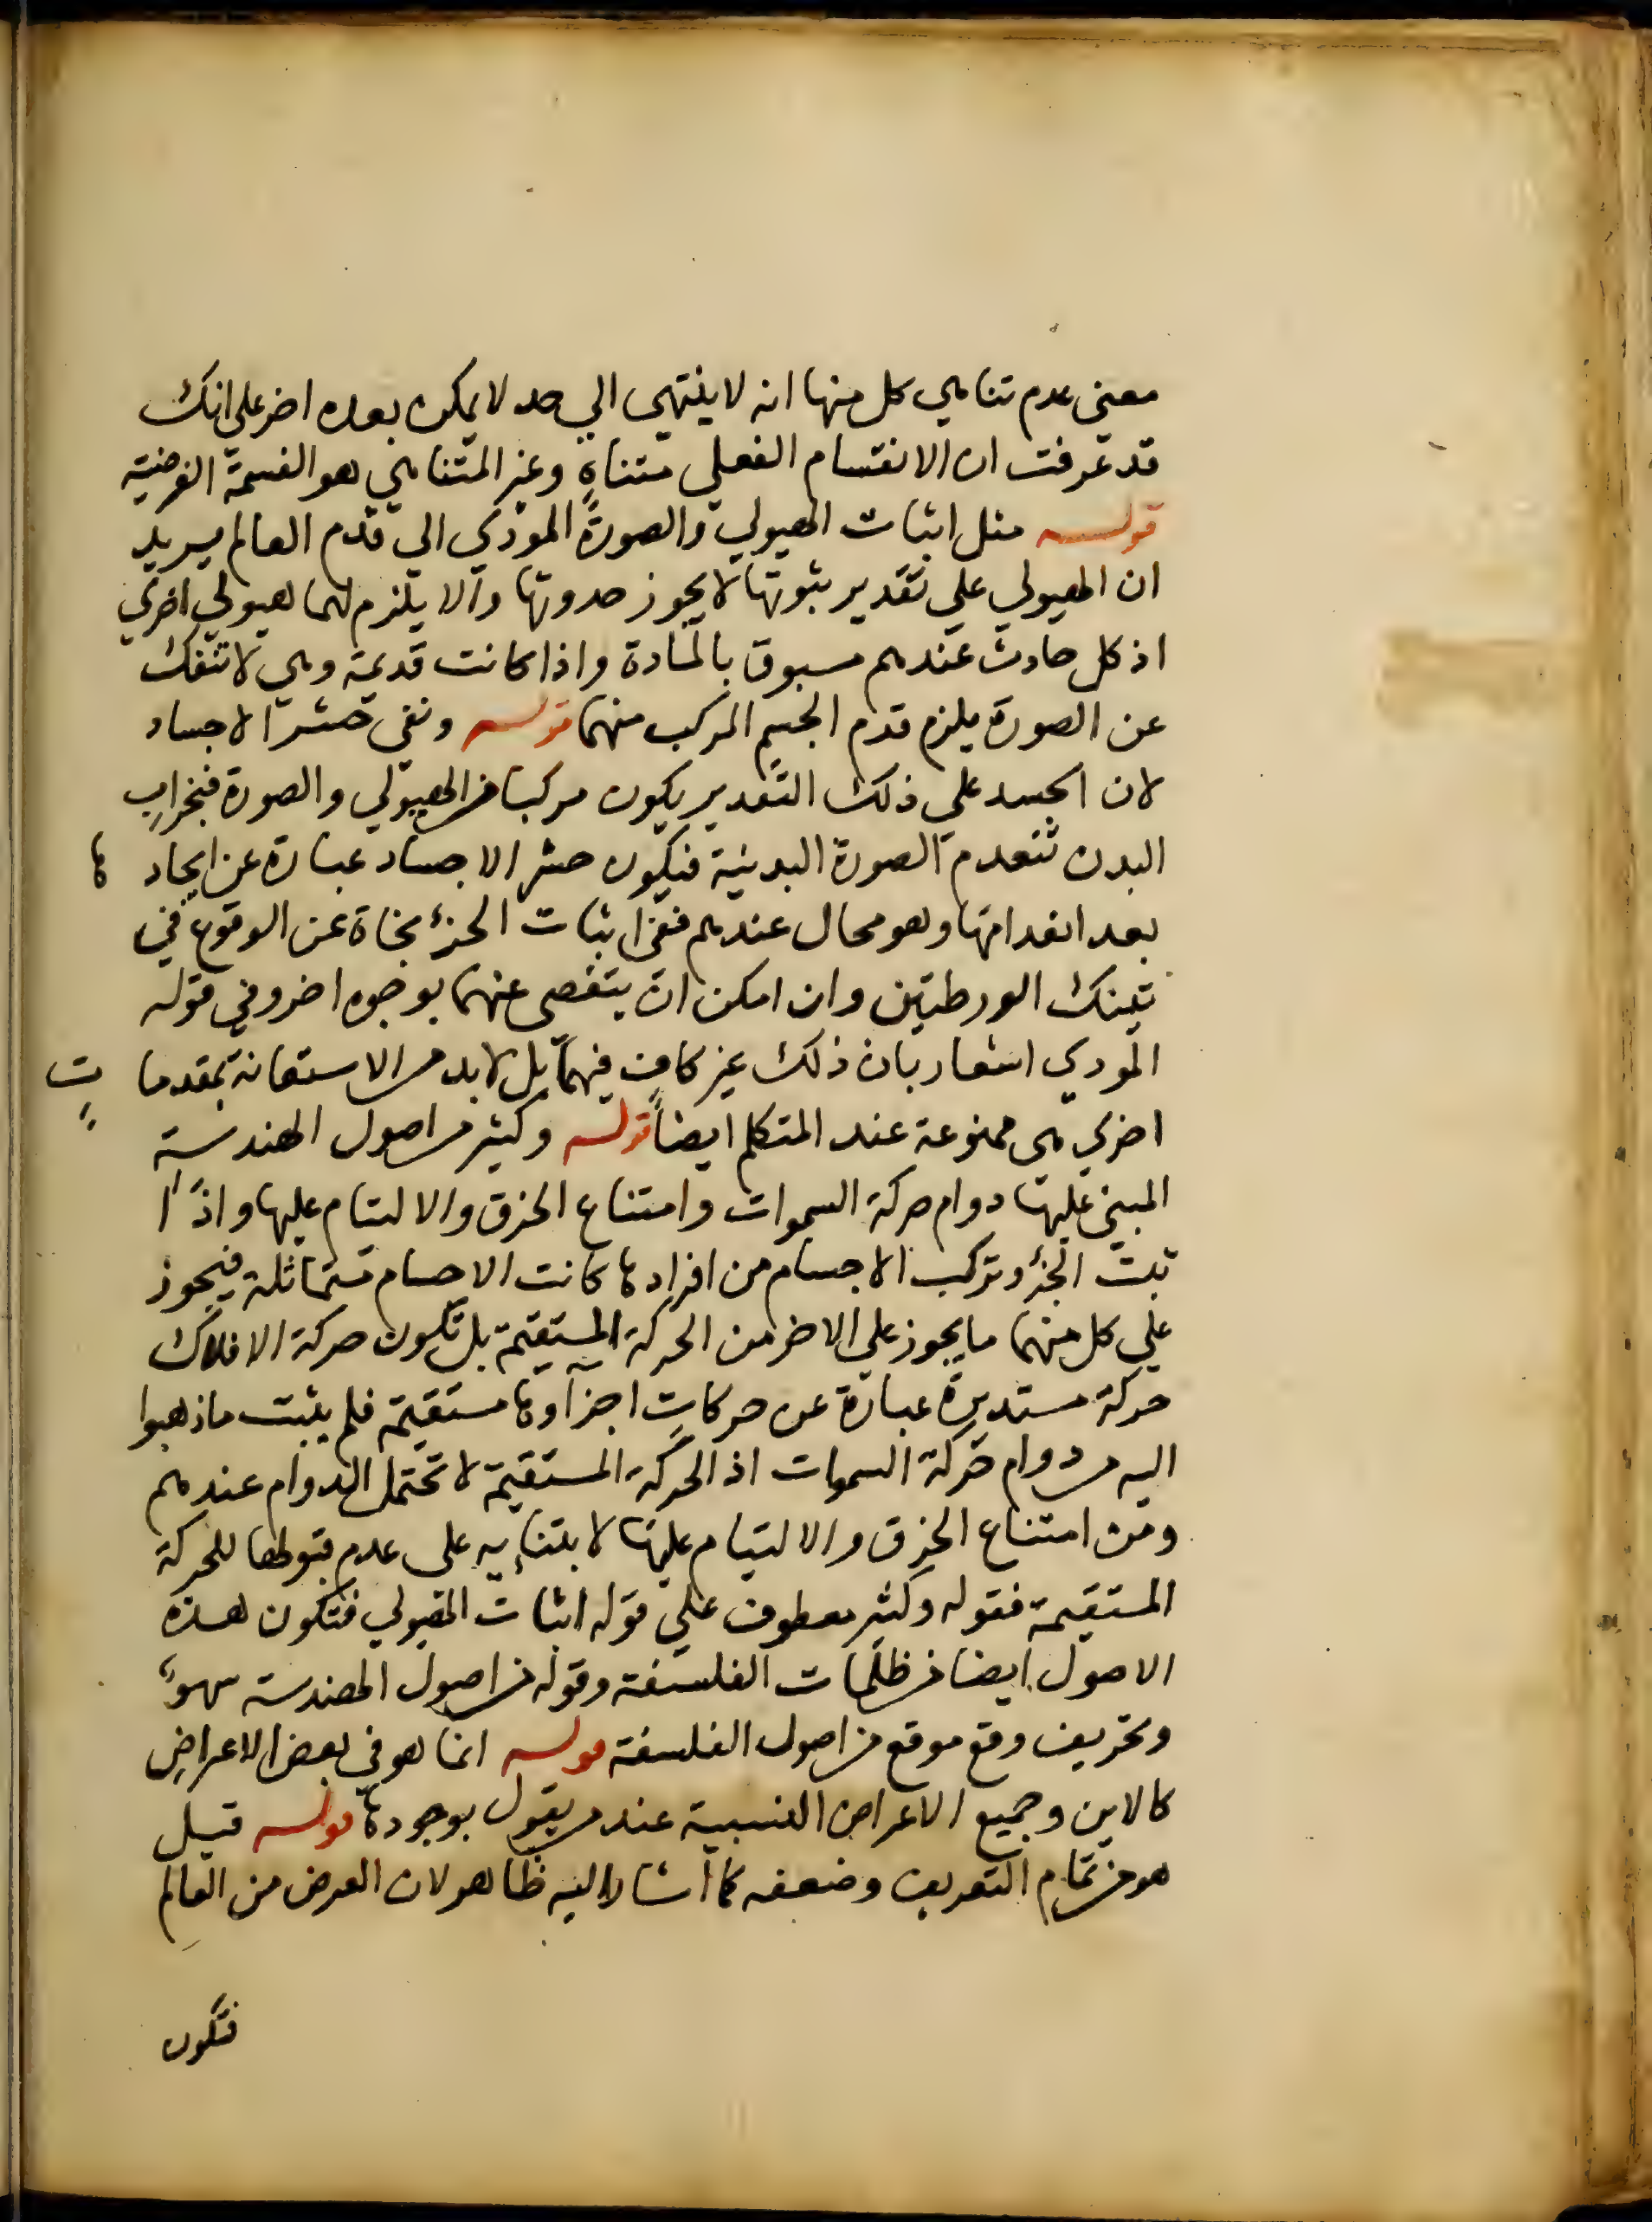 معنى عدم تناهي كل منها انه لا ينتهي الي حد لا يمكن بعده اخر على انك
قد عرفت ان الانقسام الفعلي متناهٍ وغير المتناهي هو القسمة الفرضية
قوله مثل اثبات الهيولي والصورة المودي الى قدم العالم يريد
ان الهيولي علي تقدير ثبوتها لا يجوز حدوثها والا يلزم لها هيولي اخري
اذ كل حادث عندهم مسبوق بالمادة واذا كانت قديمة وهي لا تنفك
عن الصورة يلزم قدم الجسم المركب منهما قوله ونفي حشر الاجساد
لان الجسد علي ذلك التقدير يكون مركبا من الهيولي والصورة فبخراب
البدن تنعدم الصورة البدنية فيكون حشر الاجساد عبارة عن ايجاد ها
بعد انعدامها وهو محال عندهم ففي اثبات الجزء نجاة عن الوقوع في
تينك الورطتين وان امكن ان يتفصى عنهما بوجوه اخر وفي قوله
المودي اشعار بان ذلك غير كافٍ فيهما بل لابد من الاستعانة بمقدما تٍ
اخري هي ممنوعة عند المتكلم ايضاً قوله وكثير من اصول الهندسة
المبني عليها دوام حركة السموات وامتناع الخرق والالتيام عليها واذا
ثبت الجزء وتركب الاجسام من افرادها كانت الاجسام متماثلة فيجوز
علي كل منهما ما يجوز علي الاخر من الحركة المستقيمة بل تكون حركة الافلاك
حركة مستديرة عبارة عن حركاتٍ اجزاوها مستقيمة فلم يثبت ما ذهبوا
اليه من دوام حركة السموات اذ الحركة المستقيمة لا تحتمل الدوام عندهم
ومن امتناع الخرق والالتيام عليها لابتنايه على عدم قبولها للحركة
المستقيمة فقوله وكثير معطوف علي قوله اثبات الهيولي فتكون هذه
الاصول ايضا من ظلمات الفلسفة وقوله من اصول الهندسة سهوٌ
وتحريف وقع موقع من اصول الفلسفة قوله انما هو في بعض الاعراض
كالاين وجميع الاعراض النسبية عند من يقول بوجودها قوله قيل
هو من تمام التعريف وضعفه كما اشار اليه ظاهر لان العرض من العالم
فتكون